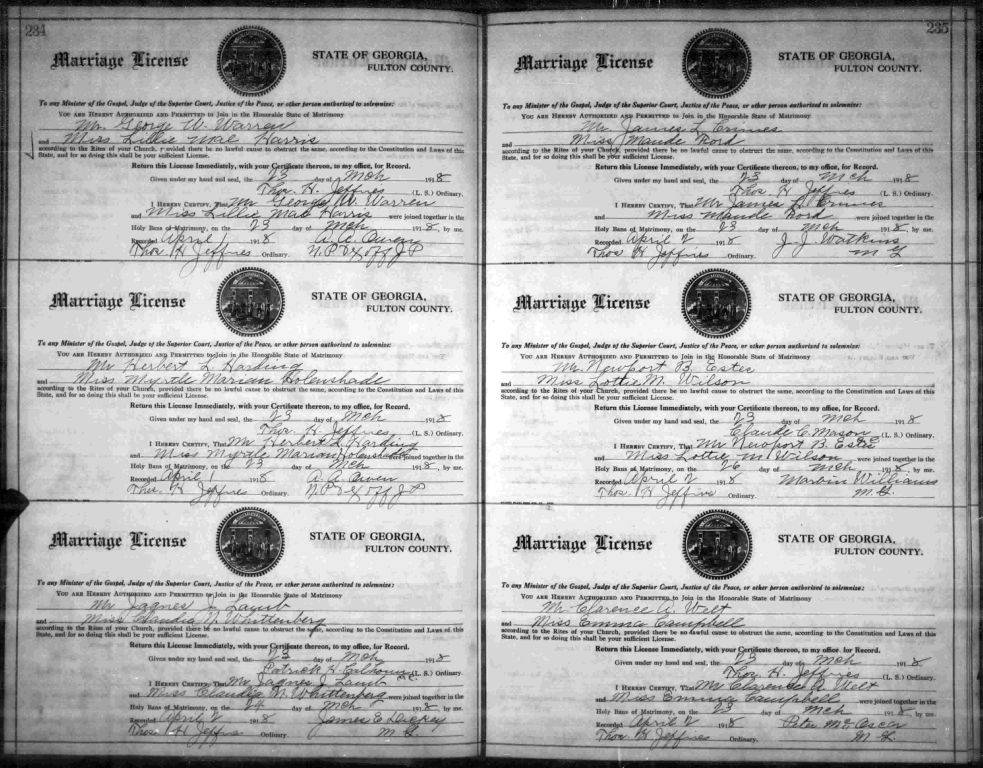 234
Marriage License
STATE OF GEORGIA,
FULTON COUNTY.
To any Minister of the Gospel, Judge of the Superior Court, Justice of the Peace, or other person authorized to solemnize:
YOU ARE HEREBY AUTHORIZED AND PERMITTED to Join in the Honorable State of Matrimony
Mr. George W. Warren
and Miss Lillie Mae Harris
according to the Rites of your Church, provided there be no lawful cause to obstruct the same, according to the Constitution and Laws of this
State, and for so doing this shall be your sufficient License.
Return this License Immediately, with your Certificate thereon, to my office, for Record.
Given under my hand and seal, the 23 day of Mch 1918
Thos. H. Jeffries (L. S.) Ordinary.
I HEREBY CERTIFY, That Mr George W. Warren
and Miss Lillie Mae Harris were joined together in the
Holy Bans of Matrimony, on the 23 day of Mch 1918, by me.
Recorded April 1 1918 A. C. Owen
Thos. H. Jeffries Ordinary. N. P. & Ex off J P
Marriage License
STATE OF GEORGIA,
FULTON COUNTY.
To any Minister of the Gospel, Judge of the Superior Court, Justice of the Peace, or other person authorized to solemnize:
YOU ARE HEREBY AUTHORIZED AND PERMITTED to Join in the Honorable State of Matrimony
Mr Herbert L. Harding
and Miss Myrtle Marion Holenshade
according to the Rites of your Church, provided there be no lawful cause to obstruct the same, according to the Constitution and Laws of this
State, and for so doing this shall be your sufficient License.
Return this License Immediately, with your Certificate thereon, to my office, for Record.
Given under my hand and seal, the 23 day of Mch 1918
Thos. H. Jeffries (L. S.) Ordinary.
I HEREBY CERTIFY, That Mr Herbert L Harding
and Miss Myrtle Marion Holenshade were joined together in the
Holy Bans of Matrimony, on the 23 day of Mch 1918, by me.
Recorded April 1 1918 A. C. Owen
Thos. H Jeffries Ordinary. N. P & Ex off J P
Marriage License
STATE OF GEORGIA,
FULTON COUNTY.
To any Minister of the Gospel, Judge of the Superior Court, Justice of the Peace, or other person authorized to solemnize:
YOU ARE HEREBY AUTHORIZED AND PERMITTED to Join in the Honorable State of Matrimony
Mr Jagnes J. Lamb
and Miss Claudia N. Whittenberg
according to the Rites of your Church, provided there be no lawful cause to obstruct the same, according to the Constitution and Laws of this
State, and for so doing this shall be your sufficient License.
Return this License Immediately, with your Certificate thereon, to my office, for Record.
Given under my hand and seal, the 23 day of Mch 1918
Patrick H. Calhoun (L. S.) Ordinary.
I HEREBY CERTIFY, That Mr Jagnes J. Lamb
and Miss Claudia N. Whittenberg were joined together in the
Holy Bans of Matrimony, on the 24 day of Mch 1918, by me.
Recorded April 2 1918 James E Dickey
Thos H Jeffries Ordinary. M G
235
Marriage License
STATE OF GEORGIA,
FULTON COUNTY.
To any Minister of the Gospel, Judge of the Superior Court, Justice of the Peace, or other person authorized to solemnize:
YOU ARE HEREBY AUTHORIZED AND PERMITTED to Join in the Honorable State of Matrimony
Mr James L
and Miss Maude Ford
according to the Rites of your Church, provided there be no lawful cause to obstruct the same, according to the Constitution and Laws of this
State, and for so doing this shall be your sufficient License.
Return this License Immediately, with your Certificate thereon, to my office, for Record.
Given under my hand and seal, the 23 day of Mch 1918
Thos H Jeffries (L. S.) Ordinary.
I HEREBY CERTIFY, That Mr James L
and Miss Maude Ford were joined together in the
Holy Bans of Matrimony, on the 23 day of Mch 1918, by me.
Recorded April 2 1918 J. J. Watkins
Thos H Jeffries Ordinary. M G
Marriage License
STATE OF GEORGIA,
FULTON COUNTY.
To any Minister of the Gospel, Judge of the Superior Court, Justice of the Peace, or other person authorized to solemnize:
YOU ARE HEREBY AUTHORIZED AND PERMITTED to Join in the Honorable State of Matrimony
Mr. Newport B. Estes
and Miss Lottie M. Wilson
according to the Rites of your Church, provided there be no lawful cause to obstruct the same, according to the Constitution and Laws of this
State, and for so doing this shall be your sufficient License.
Return this License Immediately, with your Certificate thereon, to my office, for Record.
Given under my hand and seal, the 23 day of Mch 1918
Claude C. Mason (L. S.) Ordinary.
I HEREBY CERTIFY, That Mr Newport B. Estes
and Miss Lottie M Wilson were joined together in the
Holy Bans of Matrimony, on the 26 day of Mch 1918, by me.
Recorded April 2 1918 Marvin Williams
Thos. H Jeffries Ordinary. M. G.
Marriage License
STATE OF GEORGIA,
FULTON COUNTY.
To any Minister of the Gospel, Judge of the Superior Court, Justice of the Peace, or other person authorized to solemnize:
YOU ARE HEREBY AUTHORIZED AND PERMITTED to Join in the Honorable State of Matrimony
Mr Clarence A. Welt
and Miss Emma Campbell
according to the Rites of your Church, provided there be no lawful cause to obstruct the same, according to the Constitution and Laws of this
State, and for so doing this shall be your sufficient License.
Return this License Immediately, with your Certificate thereon, to my office, for Record.
Given under my hand and seal, the 23 day of Mch 1918
Thos. H. Jeffries (L. S.) Ordinary.
I HEREBY CERTIFY, That Mr Clarence A Welt
and Miss Emma Campbell were joined together in the
Holy Bans of Matrimony, on the 23 day of Mch 1918, by me.
Recorded April 2 1918 Peter McOscar
Thos H Jeffries Ordinary. M G.